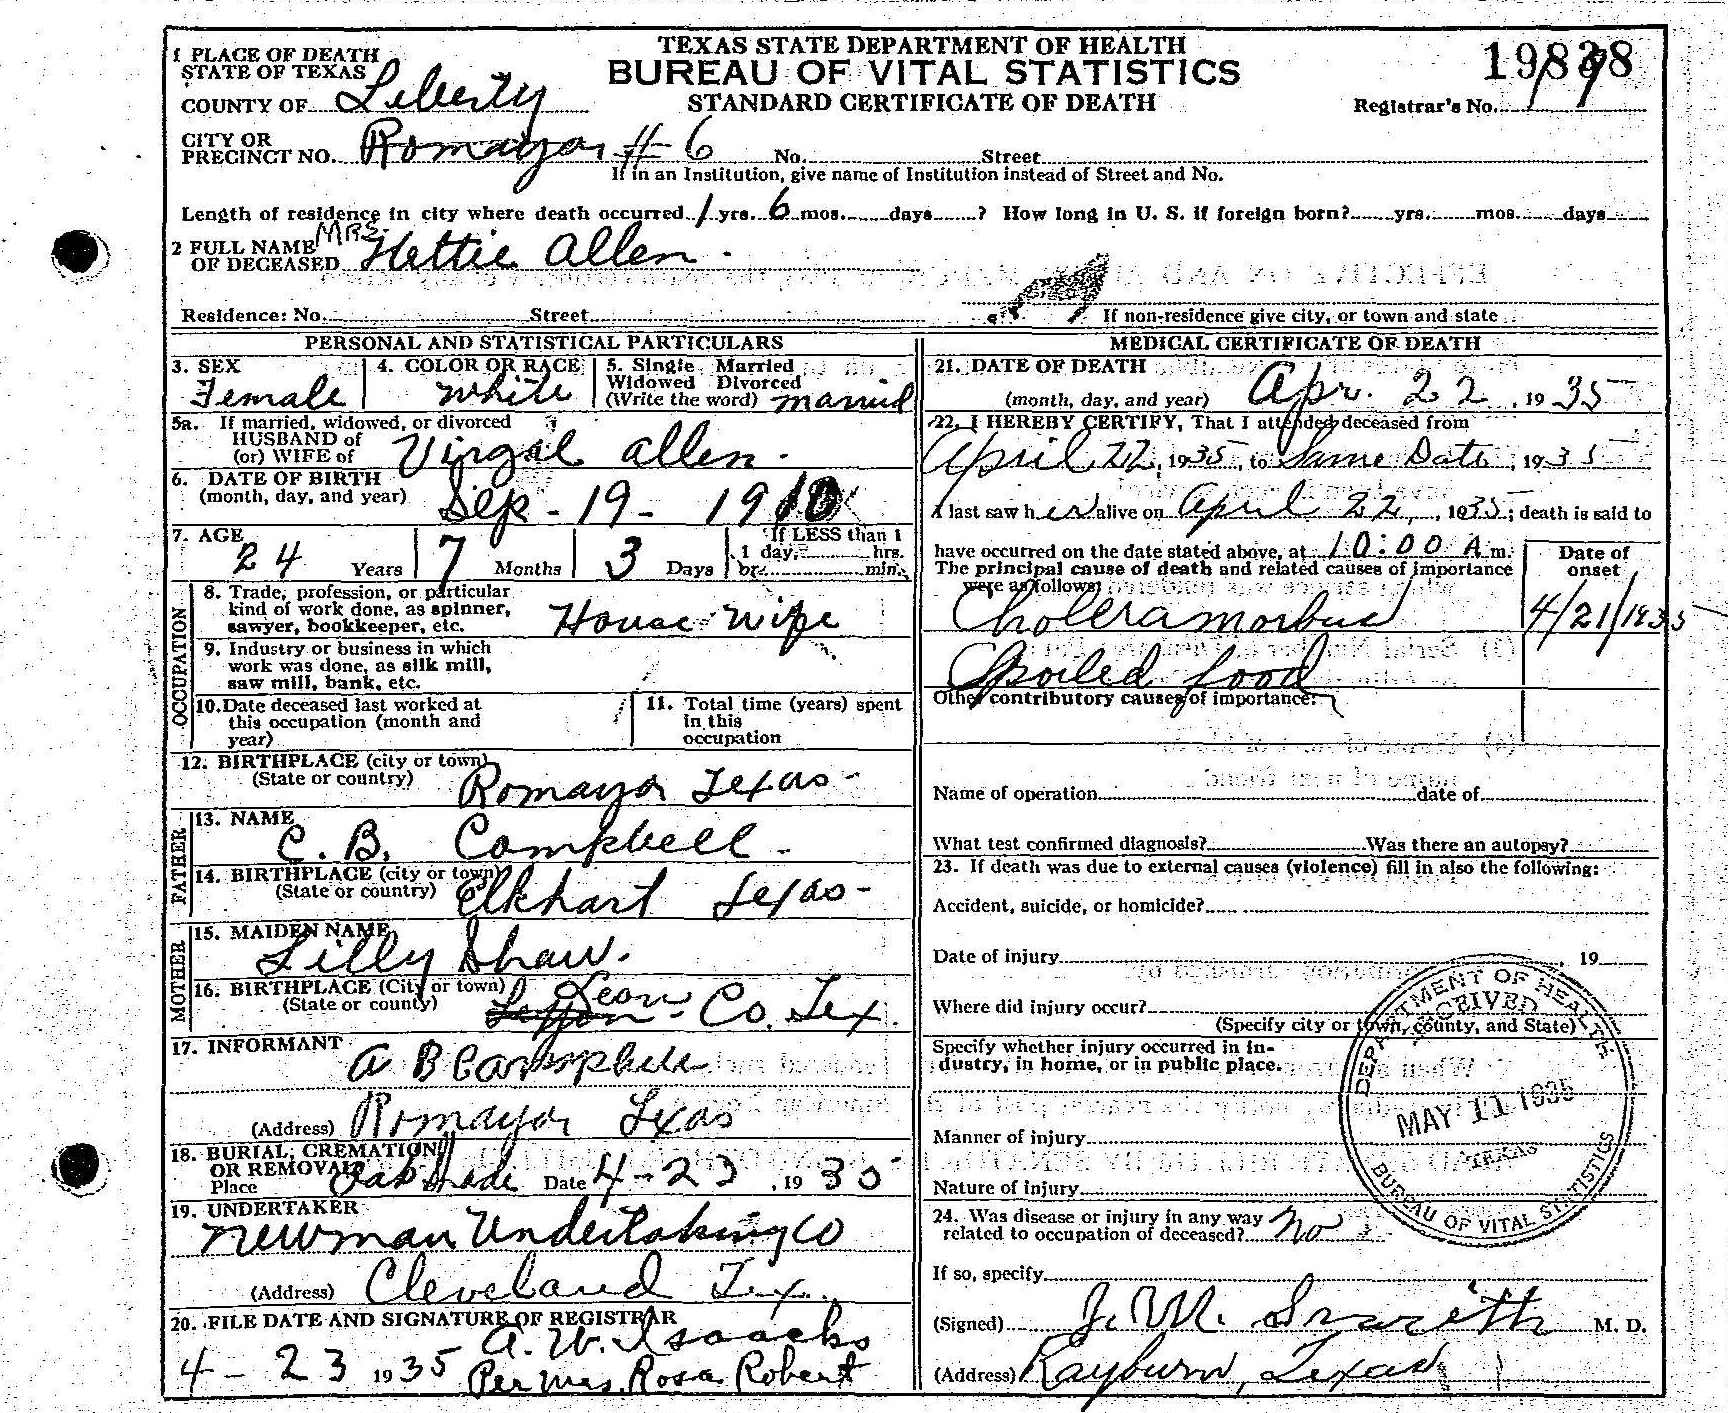 TEXAS STATE DEPARTMENT OF HEALTH
BUREAU OF VITAL STATISTICS
STANDARD CERTIFICATE OF DEATH
1 PLACE OF DEATH
STATE OF TEXAS
COUNTY OF Liberty
Registrar's No.
CITY OR
PRECINCT NO. Romayor # 6 No. Street
If in an Institution, give name of Institution instead of Street and No.
Length of residence in city where death occurred 1 yrs. 6 mos. days ? How long in U. S. if foreign born? yrs. mos. days
2 FULL NAME
OF DECEASED MRS. Hettie Allen.
Residence: No. Street If non-residence give city, or town and state
PERSONAL AND STATISTICAL PARTICULARS
3. SEX
Female
4. COLOR OR RACE
White
5. Single Married
Widowed Divorced
(Write the word) married
5a. If married, widowed, or divorced
HUSBAND of
(or) WIFE of Virgal Allen.
6. DATE OF BIRTH
(month, day, and year) Sep - 19 - 1910
7. AGE
24 Years 7 Months 3 Days
If LESS than 1
1 day, hrs.
or min.
OCCUPATION
8. Trade, profession, or particular
kind of work done, as spinner,
sawyer, bookkeeper, etc. House wife
9. Industry or business in which
work was done, as silk mill,
saw mill, bank, etc.
10. Date deceased last worked at
this occupation (month and
year)
11. Total time (years) spent
in this
occupation
12. BIRTHPLACE (city or town)
(State or country) Romayor Texas -
FATHER
13. NAME
C. B. Campbell -
14. BIRTHPLACE (city or town)
(State or country) Elkhart Texas -
MOTHER
15. MAIDEN NAME
Lilly Shaw.
16. BIRTHPLACE (City or town)
(State or county) Leon - Co. Tex.
17. INFORMANT
A B Campbell
(Address) Romayor Texas
18. BURIAL, CREMATION
OR REMOVAL
Place Oak Shade Date 4-23, 1935
19. UNDERTAKER
Newman Undertaking Co
(Address) Cleveland Tex.
20. FILE DATE AND SIGNATURE OF REGISTRAR
A. W. Isaacks
4 - 23 1935 Per Mrs. Rosa Robert
MEDICAL CERTIFICATE OF DEATH
21. DATE OF DEATH
(month, day, and year) Apr. 22, 1935
22. I HEREBY CERTIFY, That I attended deceased from
April 22, 1935, to Same Date, 1935
I last saw her alive on April 22, 1935; death is said to
have occurred on the date stated above, at 10:00 A m.
The principal cause of death and related causes of importance
were as follows:
Date of
onset
Chollera morbus 4/21/1935
Spoiled food
Other contributory causes of importance:
Name of operation date of
What test confirmed diagnosis? Was there an autopsy?
23. If death was due to external causes (violence) fill in also the following:
Accident, suicide, or homicide?
Date of injury , 19
Where did injury occur?
(Specify city or town, county, and State)
Specify whether injury occurred in in-
dustry, in home, or in public place.
Manner of injury
Nature of injury
24. Was disease or injury in any way
related to occupation of deceased? No
If so, specify
(Signed) J. M. M. D.
(Address) Rayburn, Texas
DEPARTMENT OF HEALTH
RECEIVED
MAY 11 1935
TEXAS
BUREAU OF VITAL STATISTICS